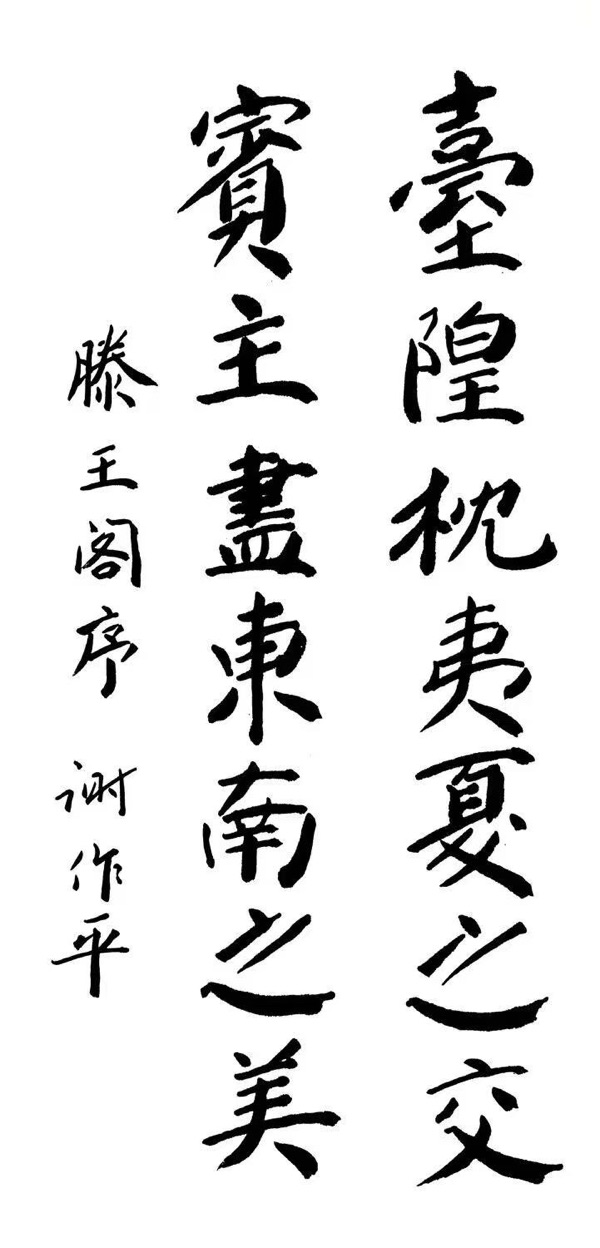 臺隍枕夷夏之交
賓主盡東南之美
滕王阁序 谢作平